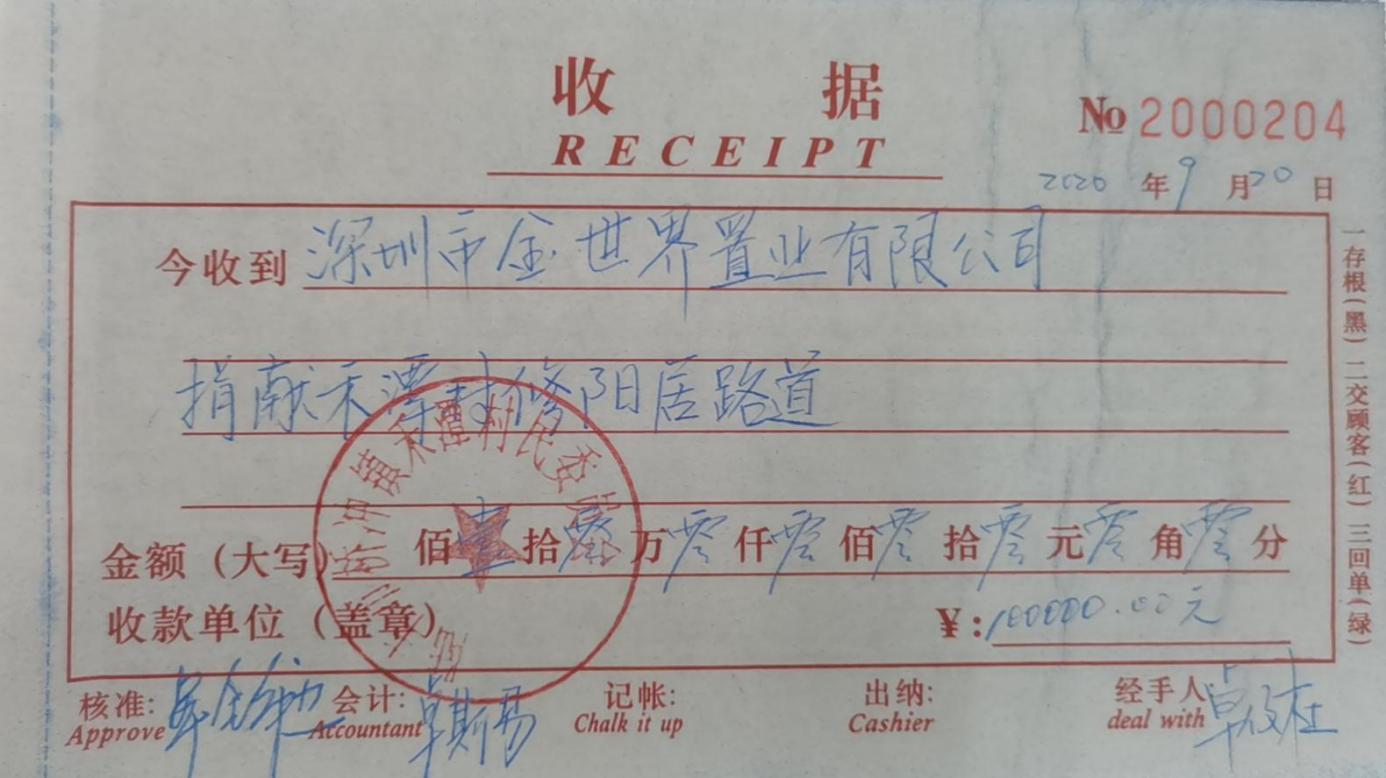 收 据
RECEIPT
№ 2000204
2020 年 9 月 20 日
今收到 深圳市金世界置业有限公司
捐献禾潭村修阳居路道
金额（大写） 佰 壹 拾 零 万 零 仟 零 佰 零 拾 零 元 零 角 零 分
收款单位（盖章） ¥: 100000.00元
核准: 会计: 记帐: 出纳: 经手人: 卓
Approve Accountant Chalk it up Cashier deal with
一存根(黑) 二交顾客(红) 三回单(绿)
镇禾潭村民委